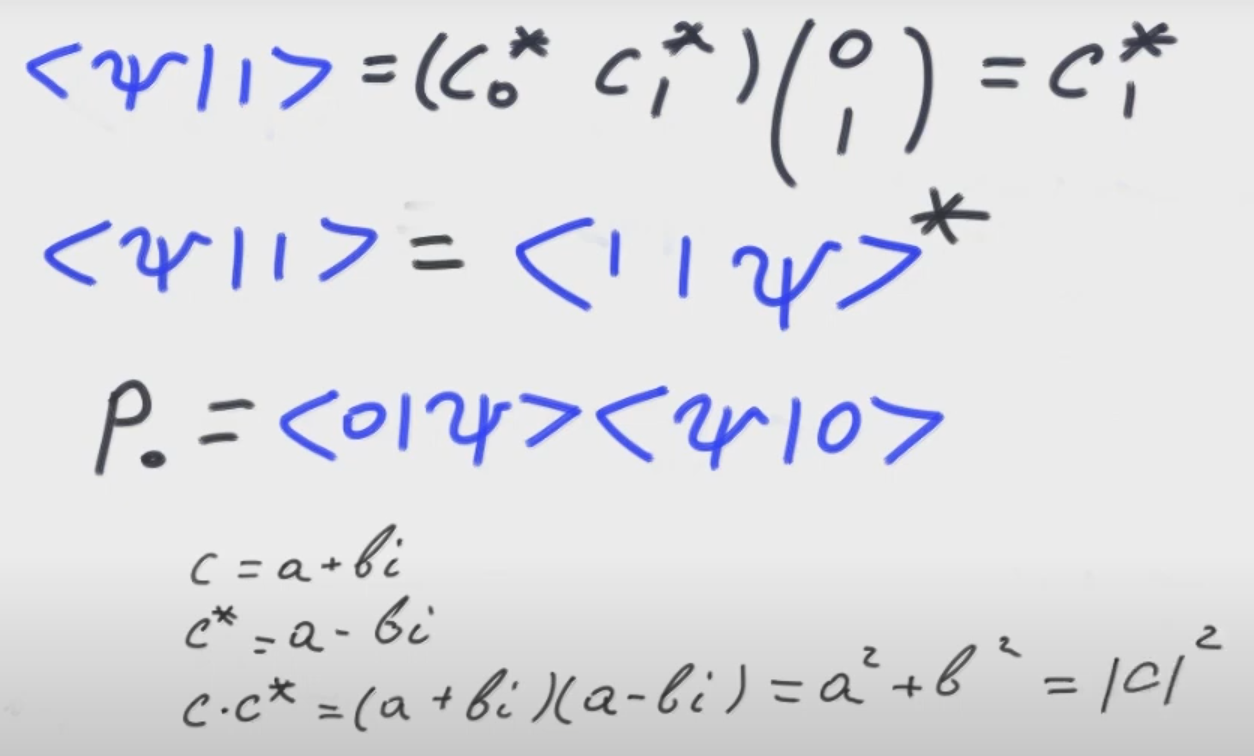 <ψ|1> = (c₀* c₁*)(0 1) = c₁*
<ψ|1> = <1|ψ>*
P₀ = <0|ψ><ψ|0>
c = a + bi
c* = a - bi
c·c* = (a + bi)(a - bi) = a² + b² = |c|²